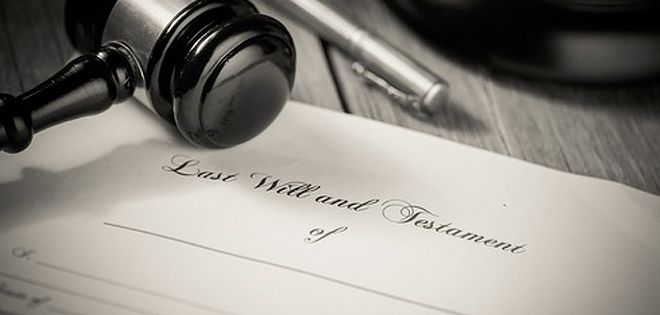 Last Will and Testament
of
I,
of